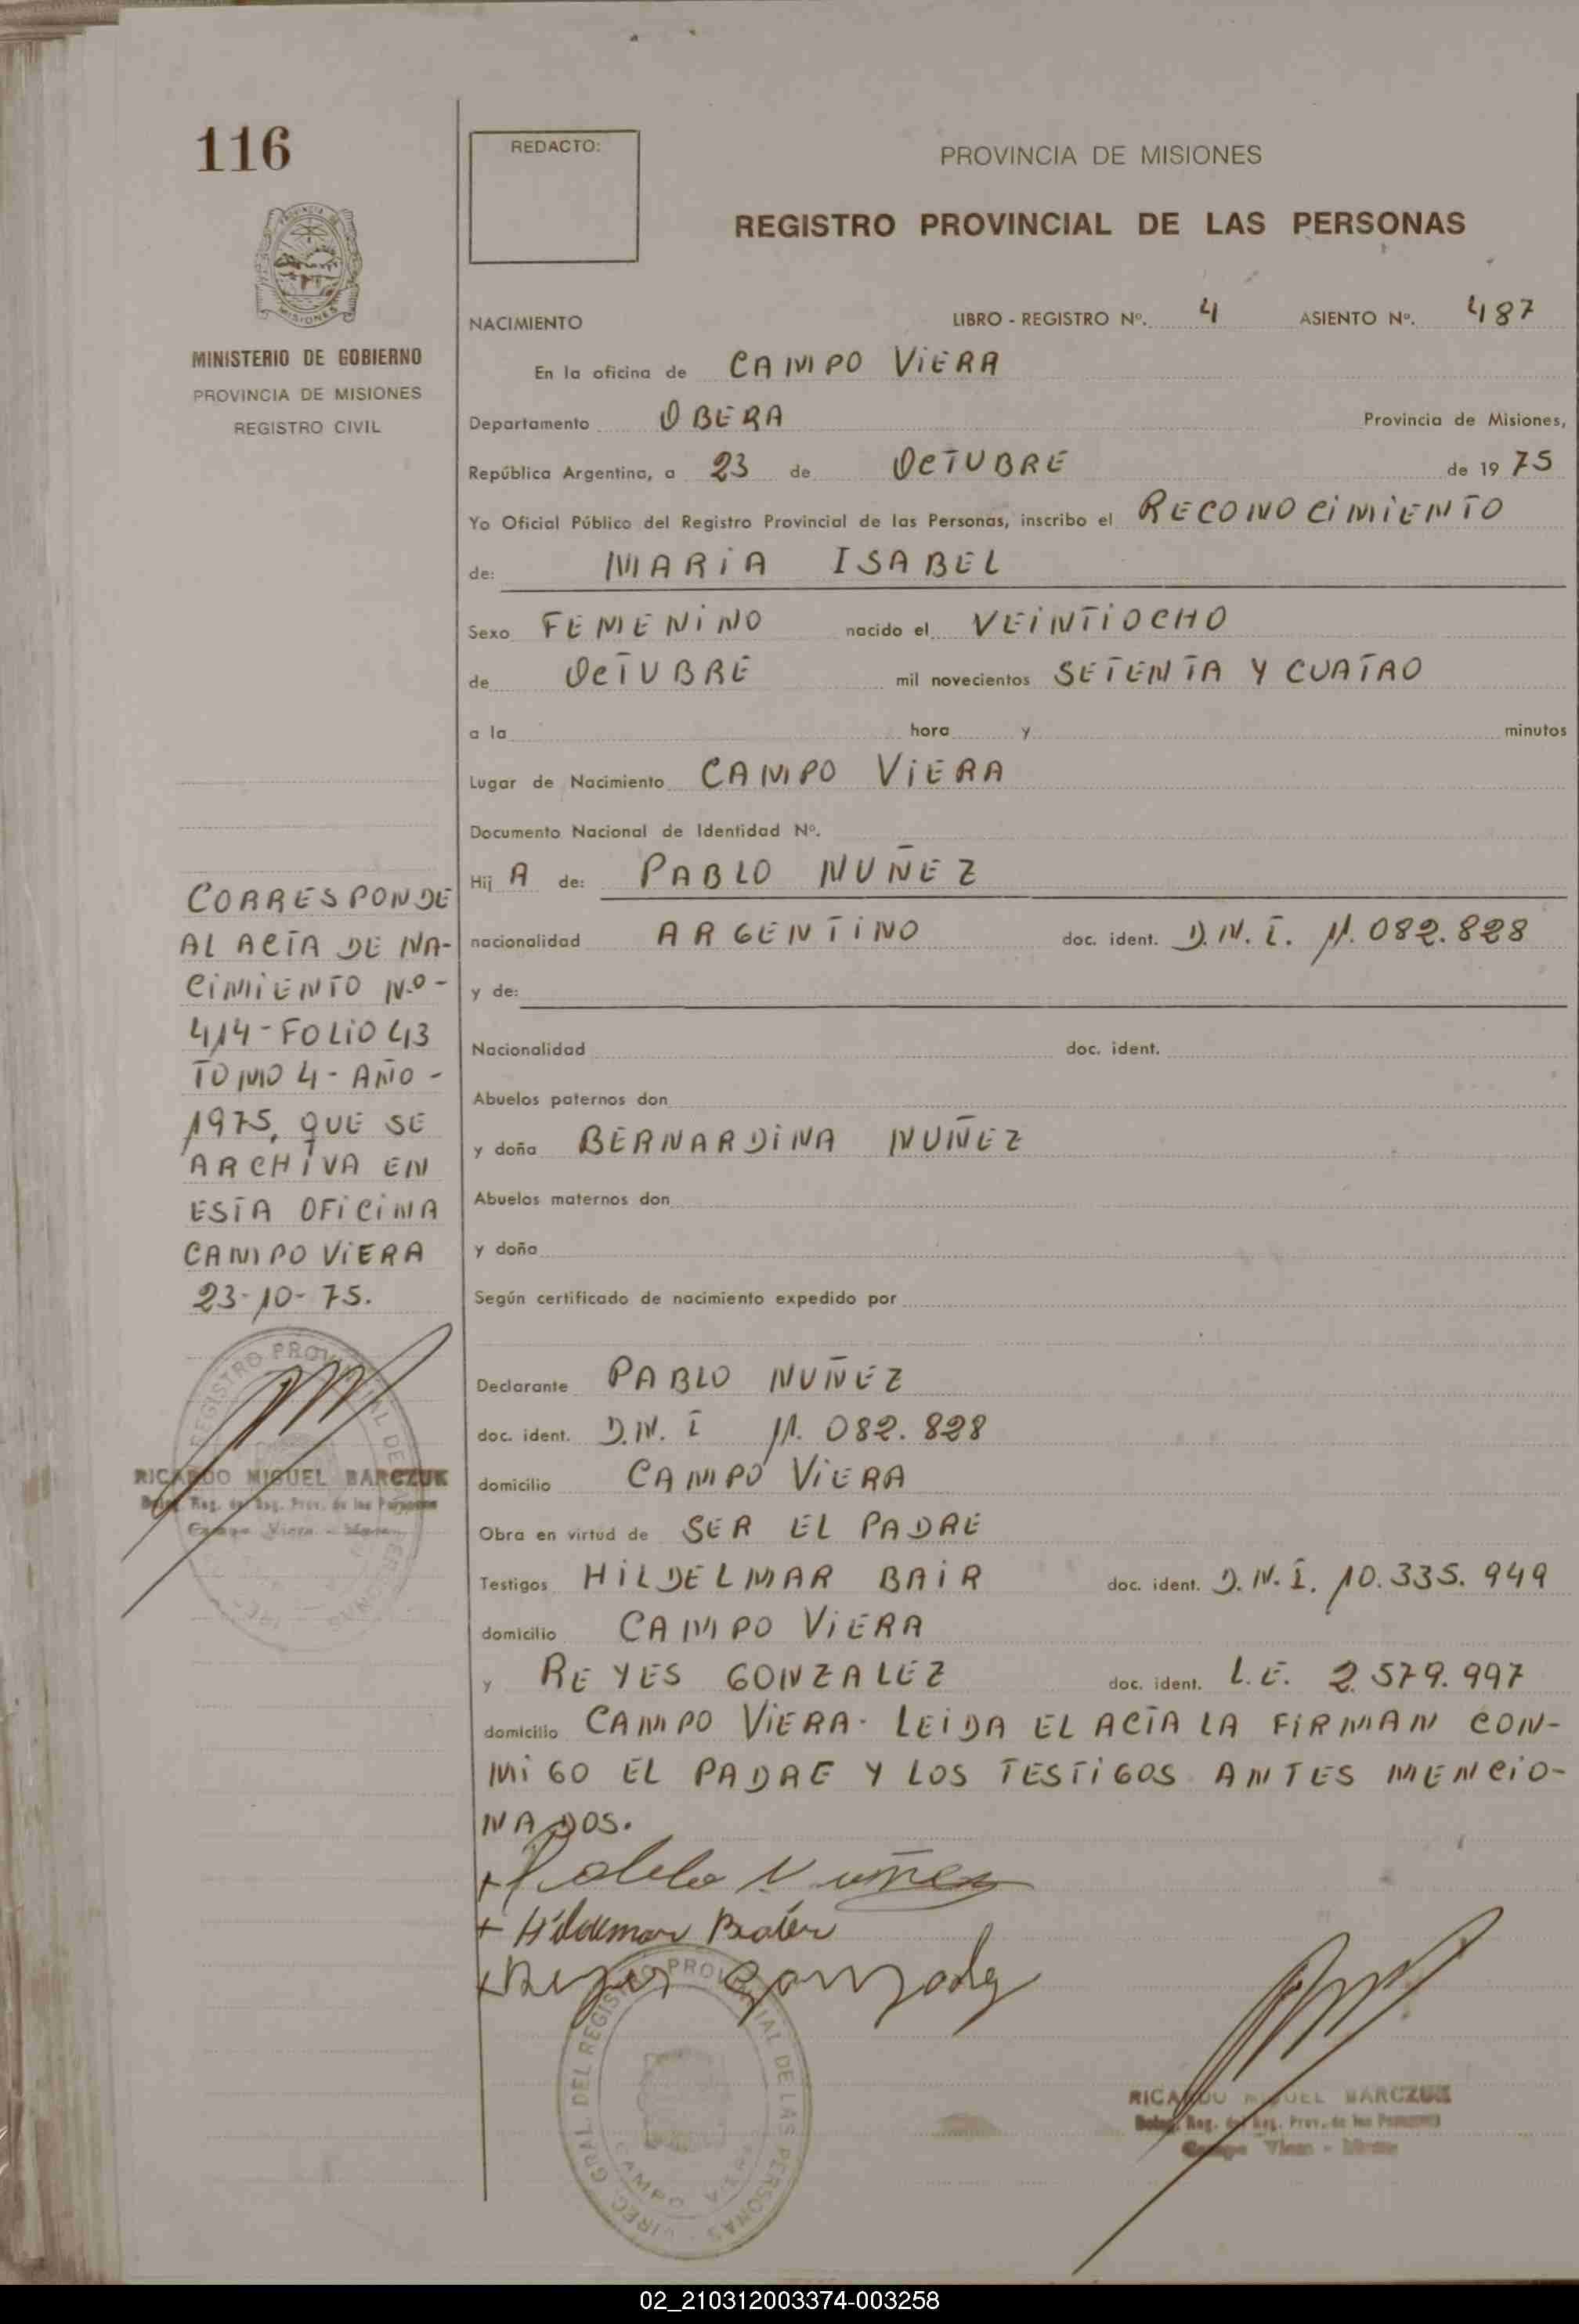 116
REDACTO:
PROVINCIA DE MISIONES
REGISTRO PROVINCIAL DE LAS PERSONAS
MISIONES
MINISTERIO DE GOBIERNO
PROVINCIA DE MISIONES
REGISTRO CIVIL
NACIMIENTO LIBRO - REGISTRO Nº. 4 ASIENTO Nº. 487
En la oficina de CAMPO VIERA
Departamento OBERA Provincia de Misiones,
República Argentina, a 23 de OCTUBRE de 19 75
Yo Oficial Público del Registro Provincial de las Personas, inscribo el RECONOCIMIENTO
de: MARIA ISABEL
Sexo FEMENINO nacido el VEINTIOCHO
de OCTUBRE mil novecientos SETENTA Y CUATRO
a la hora y minutos
Lugar de Nacimiento CAMPO VIERA
Documento Nacional de Identidad Nº.
Hij A de: PABLO NUÑEZ
nacionalidad ARGENTINO doc. ident. D.N.I. 11.082.828
y de:
Nacionalidad doc. ident.
Abuelos paternos don
y doña BERNARDINA NUÑEZ
Abuelos maternos don
y doña
Según certificado de nacimiento expedido por
Declarante PABLO NUÑEZ
doc. ident. D.N.I 11.082.828
domicilio CAMPO VIERA
Obra en virtud de SER EL PADRE
Testigos HILDELMAR BAIR doc. ident. D.N.I. 10.335.949
domicilio CAMPO VIERA
y REYES GONZALEZ doc. ident. L.E. 2.579.997
domicilio CAMPO VIERA. LEIDA EL ACTA LA FIRMAN CON-
MIGO EL PADRE Y LOS TESTIGOS ANTES MENCIO-
NADOS.
+ Pablo Nuñez
+ Hildemar
+ Reyes Gonzalez
CORRESPONDE
AL ACTA DE NA-
CIMIENTO N.º-
414-FOLIO 43
TOMO 4- AÑO-
1975, QUE SE
ARCHIVA EN
ESTA OFICINA
CAMPO VIERA
23-10-75.
REGISTRO PROVINCIAL DE LAS PERSONAS
RICARDO MIGUEL BARCZUK
Reg. del Reg. Prov. de las Personas
Campo Viera -
DIREC. GRAL. DEL REGISTRO PROVINCIAL DE LAS PERSONAS
CAMPO VIERA
RICARDO MIGUEL BARCZUK
Reg. del Reg. Prov. de las Personas
Campo Viera -
02_210312003374-003258